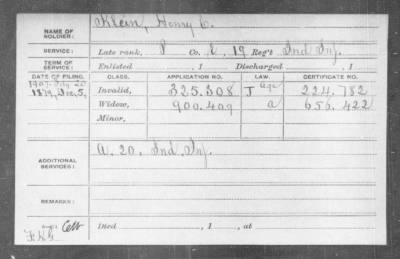 NAME OF SOLDIER: Klein, Henry C.
SERVICE: Late rank, P Co. 19 Reg't Ind Inf.
TERM OF SERVICE: Enlisted , 1 Discharged , 1
DATE OF FILING. CLASS. APPLICATION NO. LAW. CERTIFICATE NO.
1907
1879, Dec. 5, Invalid, 325.308 J Age 224.782
Widow, 900.409 a 656.422
Minor.
ADDITIONAL SERVICES: A. 20. Ind. Inf.
REMARKS:
Died , 1 , at